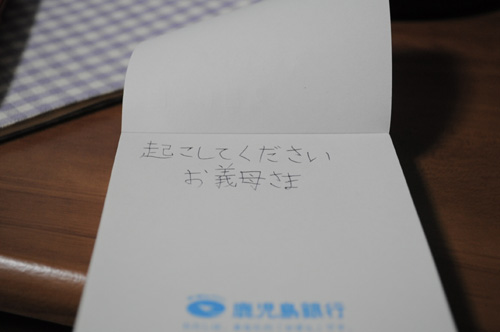 起こしてください
お義母さま
鹿児島銀行